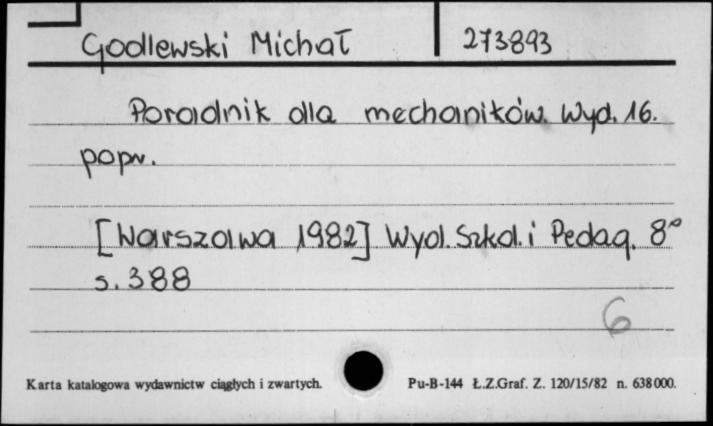 Godlewski Michał 273893
Poradnik dla mechaników. Wyd. 16.
popr.
[Warszawa 1982] Wyd. Szkol. i Pedag. 8°
s. 388
6
Karta katalogowa wydawnictw ciągłych i zwartych. Pu-B-144 Ł.Z.Graf. Z. 120/15/82 n. 638000.